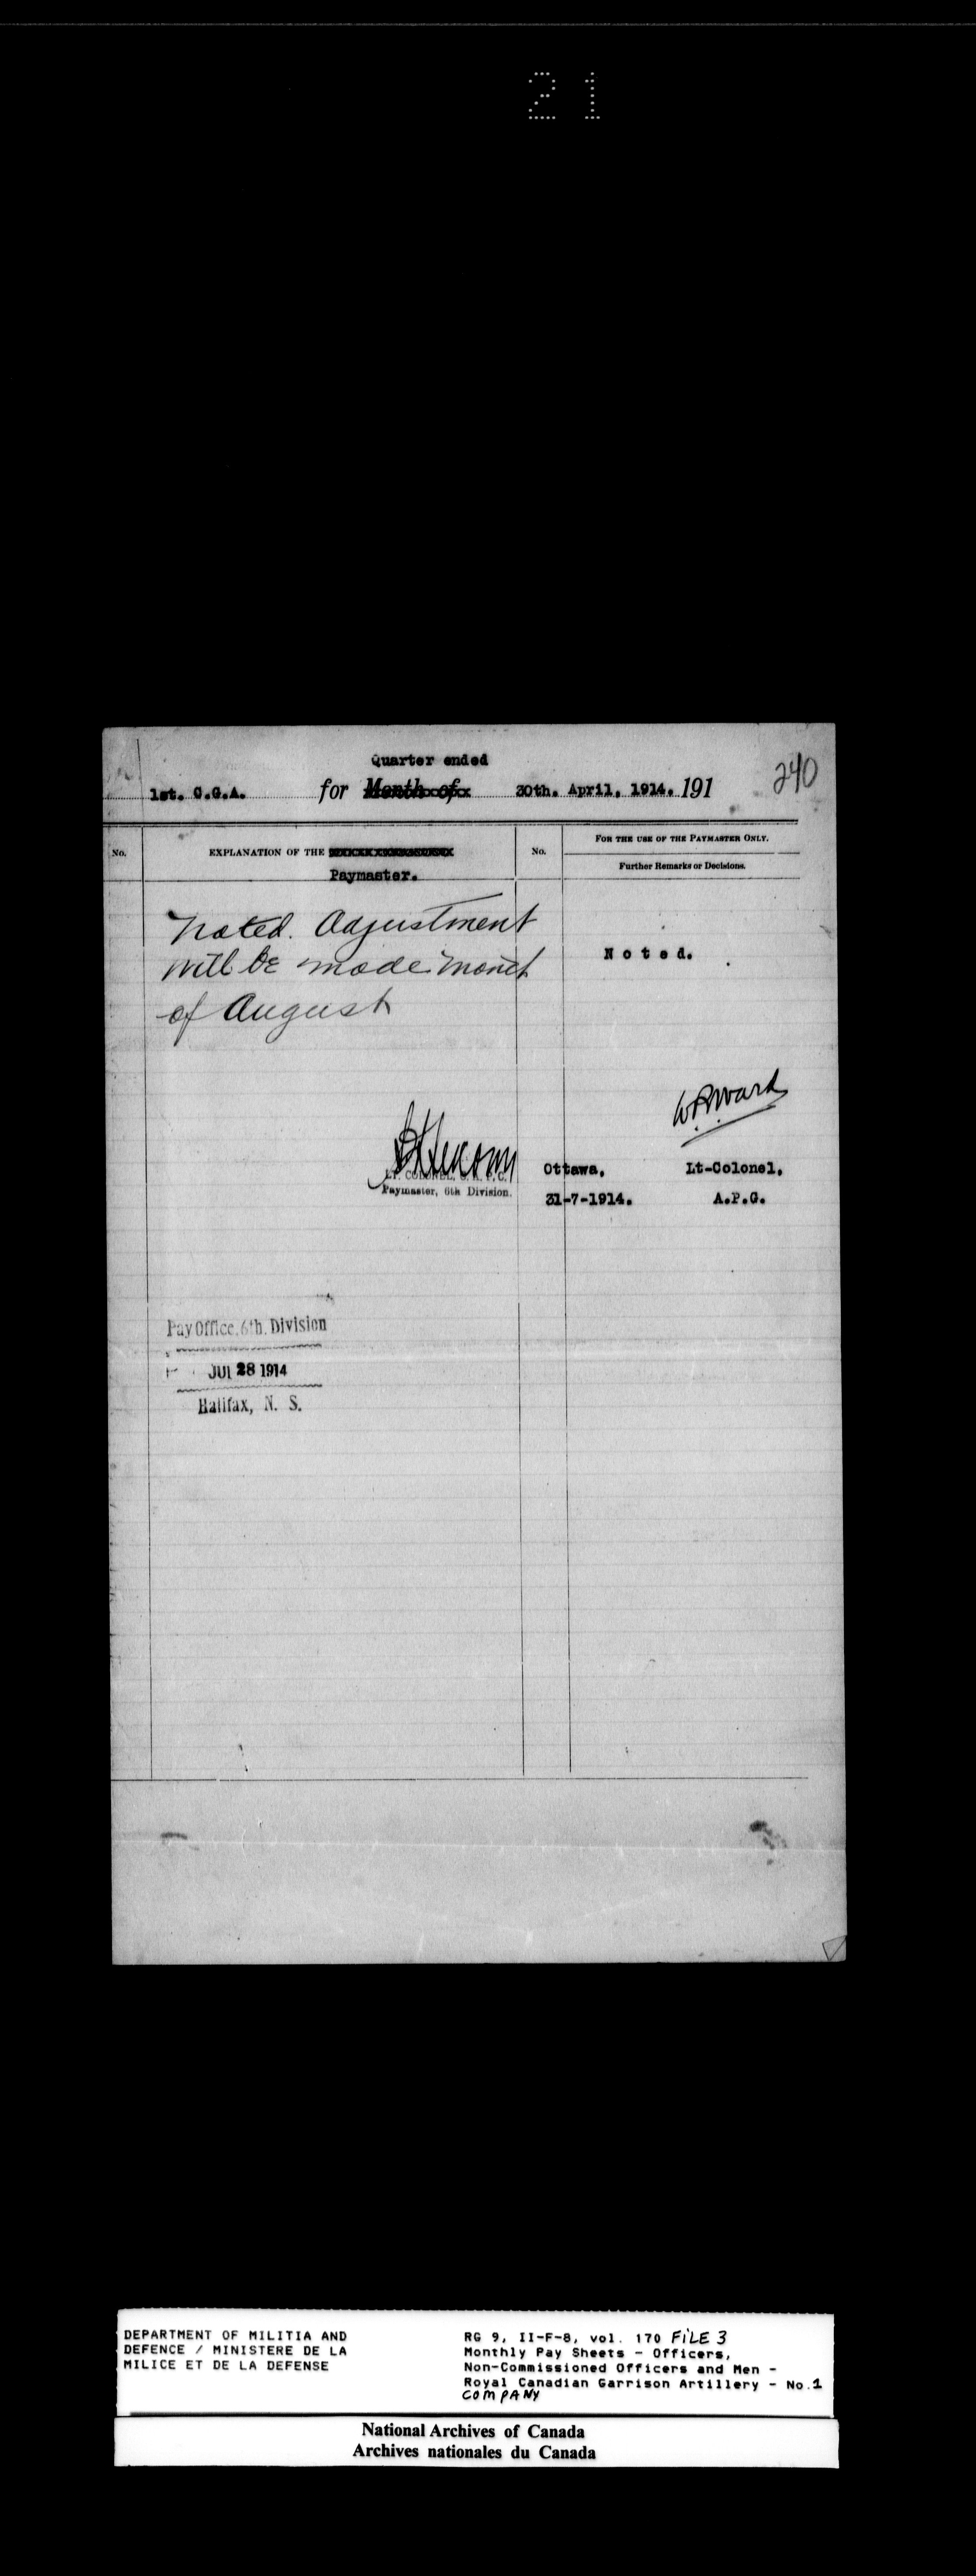 21
240
Quarter ended
1st. C.G.A. for Month of 30th. April, 1914. 191
No.
EXPLANATION OF THE
Paymaster.
No.
FOR THE USE OF THE PAYMASTER ONLY.
Further Remarks or Decisions.
Noted. Adjustment
will be made month
of August
Noted.
W.R.Ward
LT. COLONEL, C. A. P. C.
Paymaster, 6th Division.
Ottawa, Lt-Colonel,
31-7-1914. A.P.G.
Pay Office, 6th. Division
JUL 28 1914
Halifax, N. S.
DEPARTMENT OF MILITIA AND
DEFENCE / MINISTERE DE LA
MILICE ET DE LA DEFENSE
RG 9, II-F-8, vol. 170 FILE 3
Monthly Pay Sheets - Officers,
Non-Commissioned Officers and Men -
Royal Canadian Garrison Artillery - No.1
COMPANY
National Archives of Canada
Archives nationales du Canada